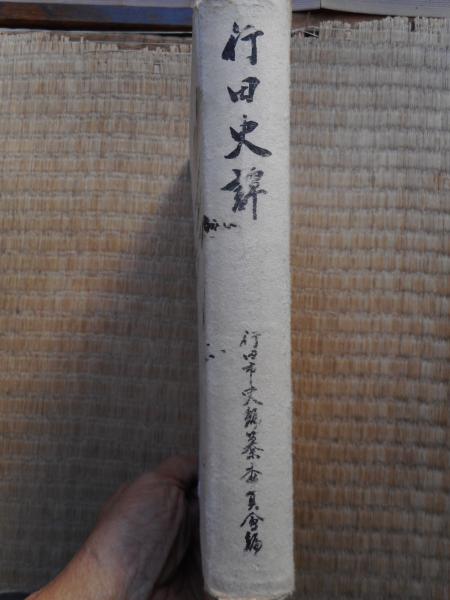 行田史譚
行田市史編纂委員会編